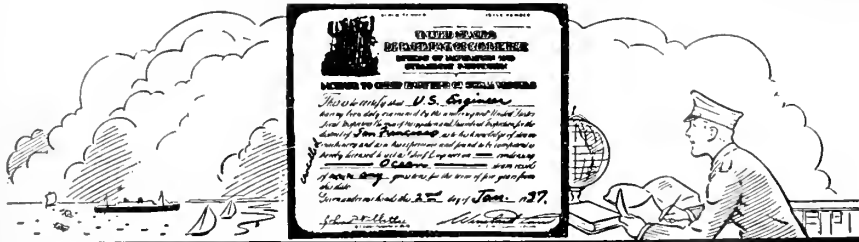 UNITED STATES
DEPARTMENT OF COMMERCE
BUREAU OF NAVIGATION AND
STEAMBOAT INSPECTION
LICENSE TO CHIEF ENGINEER OF STEAM VESSELS
This is to certify that U.S. Engineer
having been duly examined by the undersigned United States
Local Inspectors
district of San Francisco, as to his knowledge of steam
machinery and as to his experience and found to be competent
hereby licensed to act as Chief Engineer on
Ocean steam vessels
of any gross tons for the term of five years from
this date.
Given under our hands this 2nd day of Jan. 1937.